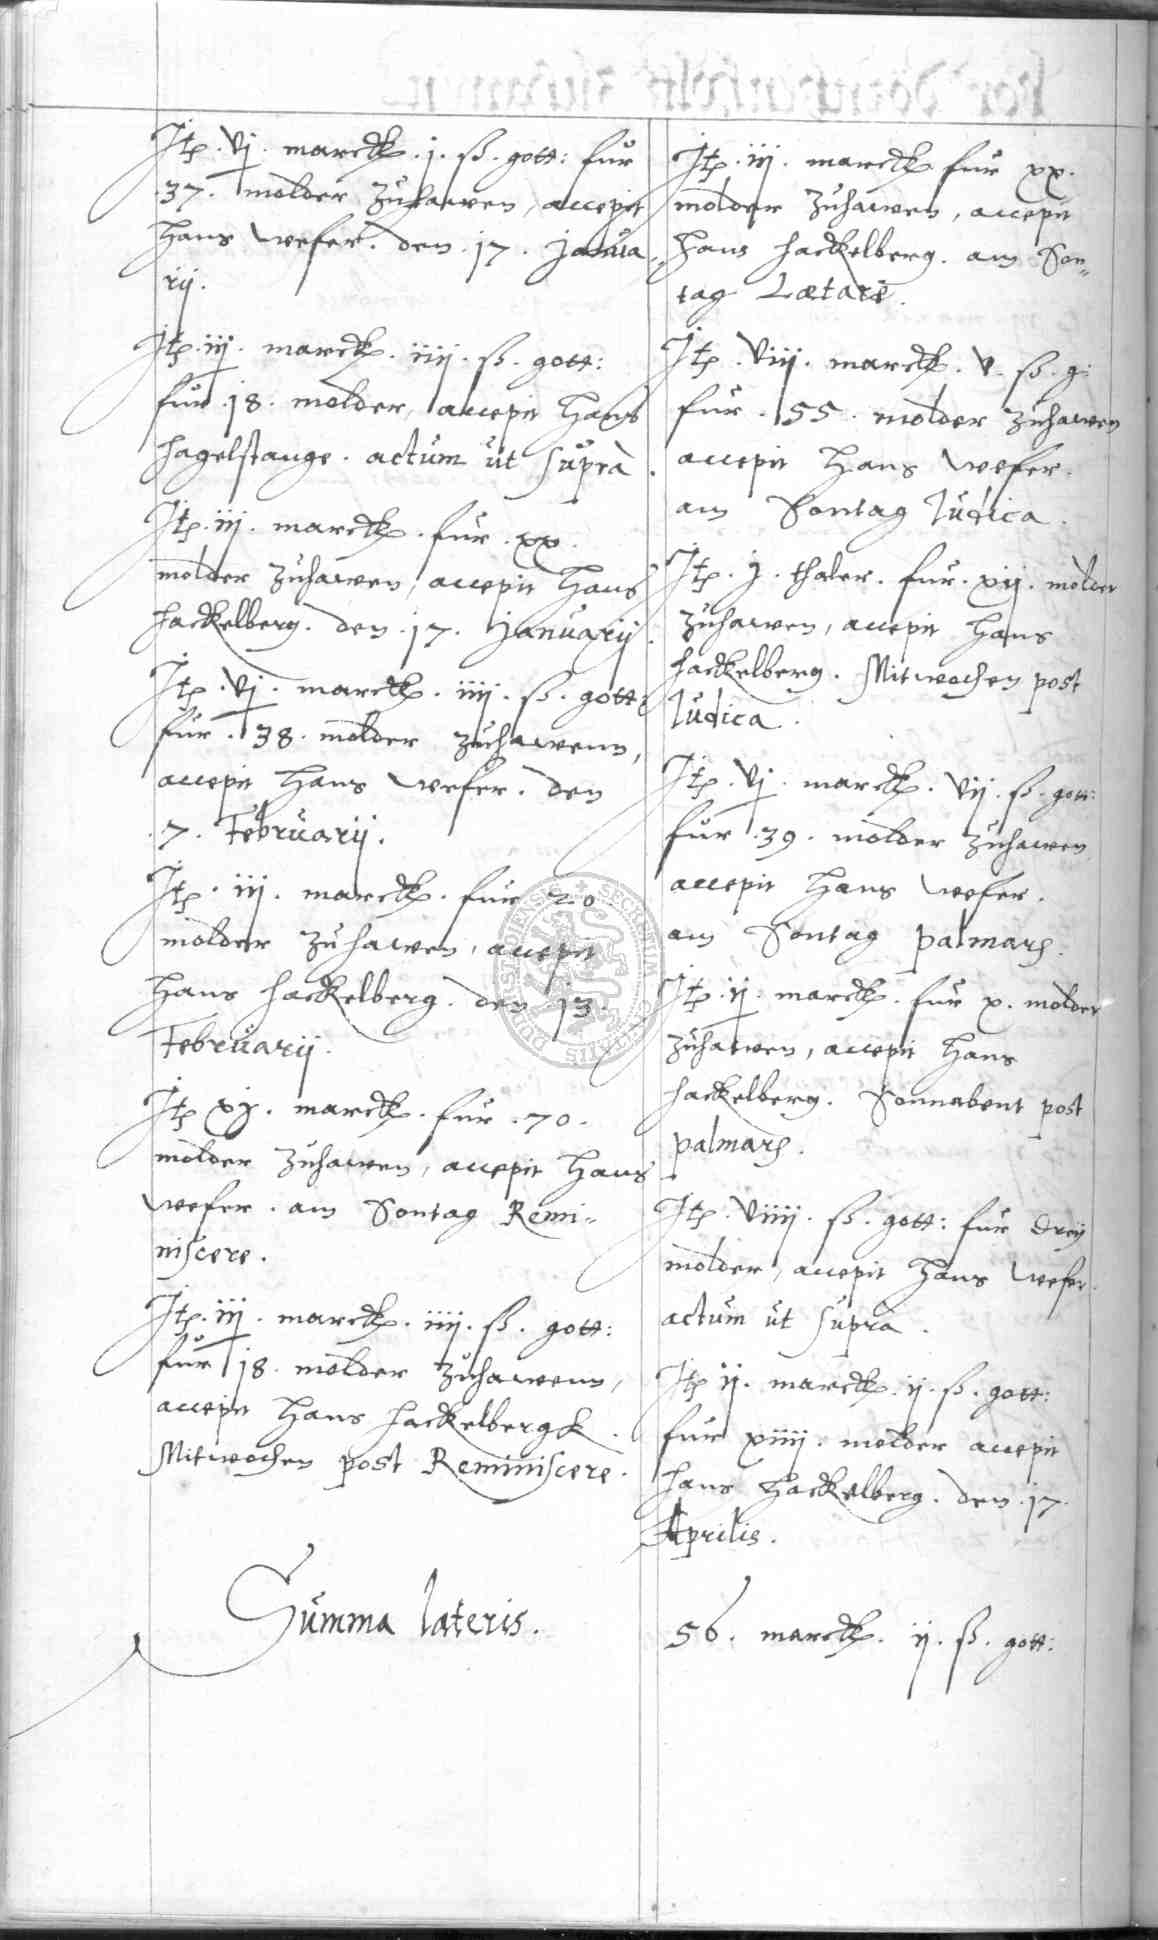 Jtp. vj. marck. j. ß. gott: fur
.37. molder zuhawen, accepit
Hans Wefer. den .17. Janua„
rij.
Jtp. iij. marck. iiij. ß. gott:
fur .18. molder, accepit Hans
hagelstange. actum ut supra.
Jtp. iij. marck. fur. xx.
molder zuhawen, accepit Hans
hackelberg. den .17. Januarij.
Jtp. vj. marck. iiij. ß. gott:
fur .38. molder zuhawenn,
accepit Hans Wefer. den
.7. Februarij.
Jtp. iij. marck. fur 20.
molder zuhawen, accepit
Hans hackelberg. den 13.
Februarij.
Jtp marck. fur .70.
molder zuhawen, accepit Hans
Wefer. am Sontag Remi„
niscere.
Jtp. iij. marck. iiij. ß. gott:
fur 18. molder zuhawenn,
accepit Hans hackelbergk.
Mitwochen post Reminiscere.
Jtp. iij. marck fur xx.
molder zuhawen, accepit
Hans hackelberg. am Son„
tag Lætare.
Jtp. viij. marck. v. ß. g:
fur .55. molder zuhawen
accepit Hans Wefer.
am Sontag Iudica.
Jtp. j. thaler. fur. xij. molder
zuhawen, accepit Hans
hackelberg. Mitwochen post
Iudica.
Jtp. vj. marck. vij. ß. gott:
fur .39. molder zuhawen
accepit Hans Wefer.
am Sontag palmarum.
Jtp. ij. marck. fur x. molder
zuhawen, accepit Hans
hackelberg. Sonnabent post
palmarum.
Jtp. viiij. ß. gott: fur drej
molder, accepit Hans Wefer.
actum ut supra.
Jtp ij. marck. ij. ß. gott:
fur xiiij. molder accepit
Hans Hackelberg. den .17.
Aprilis.
Summa lateris.
56. marck. ij. ß. gott: